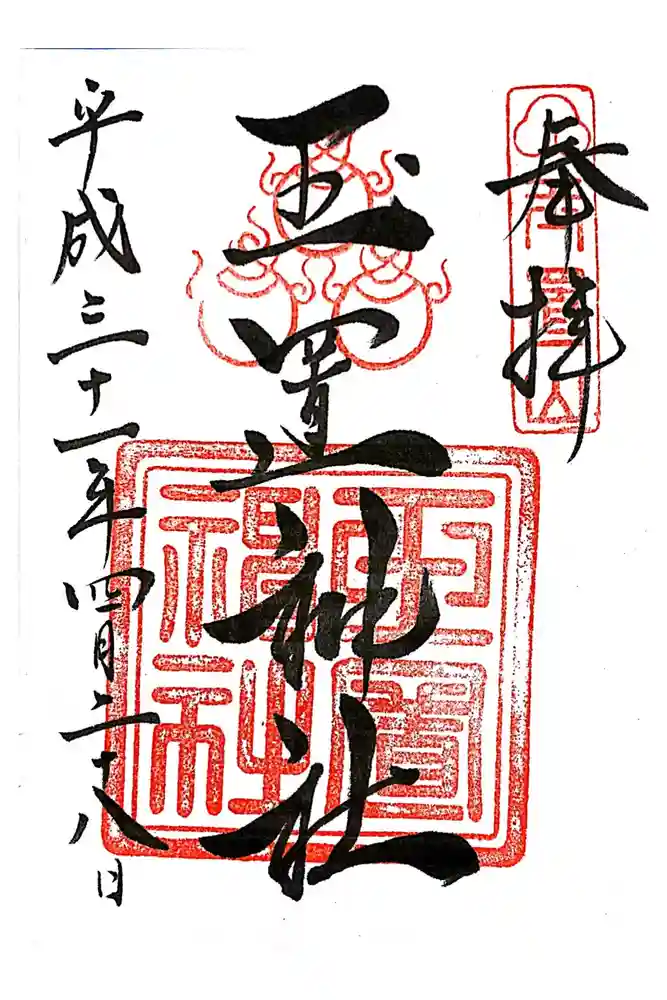 奉拝
玉置神社
玉置神社
平成三十一年四月二十八日